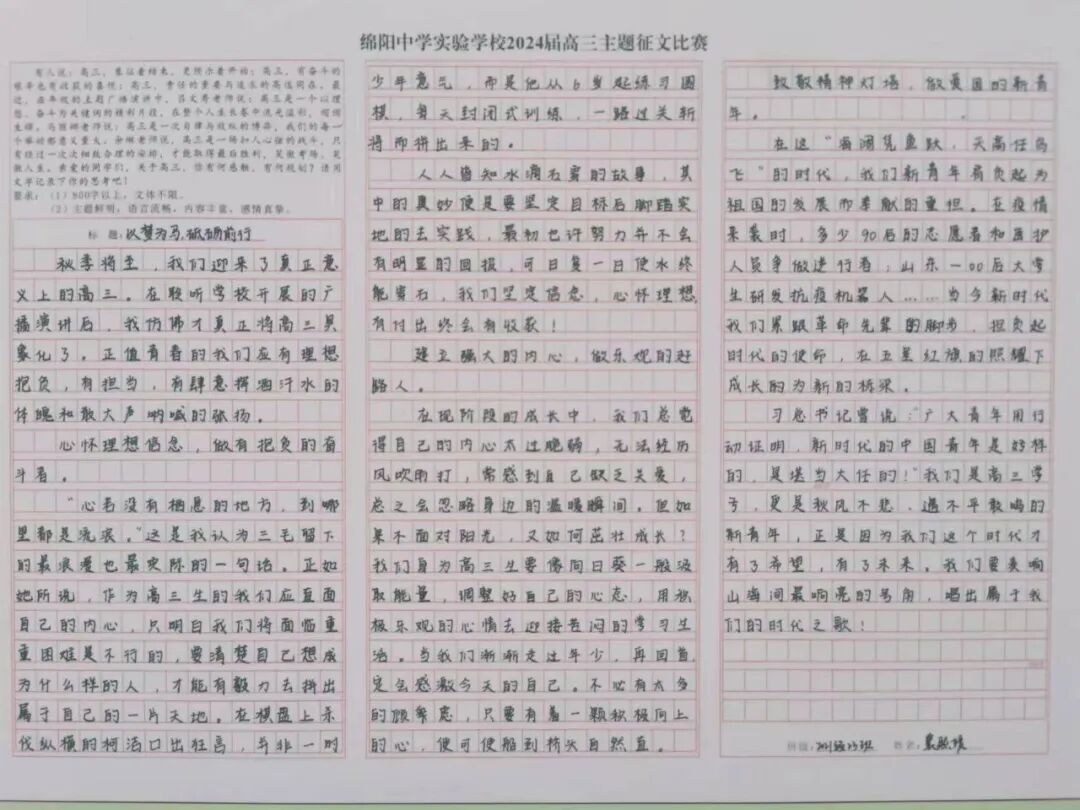 绵阳中学实验学校2024届高三主题征文比赛
有人说：高三，象征着结束，更预示着开始；高三，有奋斗的
艰辛也有收获的喜悦；高三，责任的重要与追求的高远同在。最
近，在年级的主题广播演讲中，吕文秀老师说：高三是一个以理
想、奋斗为关键词的精彩片段，在整个人生长卷中流光溢彩，熠熠
生辉。马丽娜老师说：高三是一次自律与放纵的博弈，我们的每一
个举动都意义重大。余琳老师说，高三是一场扣人心弦的战斗，只
有经过一次次细致合理的安排，才能取得最后胜利，笑傲考场，笑
傲人生。亲爱的同学们，关于高三，你有何感触，有何规划？请用
文字记录下你的思考吧！
要求：（1）800字以上，文体不限。
（2）主题鲜明，语言流畅，内容丰富，感情真挚。
标 题：以梦为马，砥砺前行
秋季将至，我们迎来了真正意
义上的高三。在聆听学校开展的广
播演讲后，我仿佛才真正将高三具
象化了。正值青春的我们应有理想
抱负，有担当，有肆意挥洒汗水的
体魄和敢大声呐喊的张扬。
心怀理想信念，做有抱负的奋
斗者。
“心若没有栖息的地方，到哪
里都是流浪。”这是我认为三毛留下
的最浪漫也最实际的一句话。正如
她所说，作为高三生的我们应直面
自己的内心，只明白我们将面临重
重困难是不行的，要清楚自己想成
为什么样的人，才能有毅力去拼出
属于自己的一片天地。在棋盘上杀
伐纵横的柯洁口出狂言，并非一时
少年意气，而是他从6岁起练习围
棋，每天封闭式训练，一路过关斩
将而拼出来的。
人人皆知水滴石穿的故事，其
中的奥妙便是要坚定目标后脚踏实
地的去实践，最初也许努力并不会
有明显的回报，可日复一日便水终
能穿石，我们坚定信念，心怀理想
有付出终会有收获！
建立强大的内心，做乐观的赶
路人。
在现阶段的成长中，我们总觉
得自己的内心太过脆弱，无法经历
风吹雨打，常感到自己缺乏关爱，
总之会忽略身边的温暖瞬间。但如
果不面对阳光，又如何茁壮成长？
我们身为高三生要像向日葵一般汲
取能量，调整好自己的心态，用积
极乐观的心情去迎接苦闷的学习生
活。当我们渐渐走过年少，再回首
定会感激今天的自己。不必有太多
的顾虑，只要有着一颗积极向上
的心，便可使船到桥头自然直。
致敬精神灯塔，做爱国的新青
年。
在这“海阔凭鱼跃，天高任鸟
飞”的时代，我们新青年肩负起为
祖国的发展而奉献的重担。在疫情
来袭时，多少90后的志愿者和医护
人员争做逆行者；山东一00后大学
生研发抗疫机器人……当今新时代
我们紧跟革命先辈的脚步，担负起
时代的使命，在五星红旗的照耀下
成长的为新的桥梁。
习总书记曾说：“广大青年用行
动证明，新时代的中国青年是好样
的，是堪当大任的！”我们是高三学
子，更是秋风不悲，遇不平敢鸣的
新青年，正是因为我们这个时代才
有了希望，有了未来。我们要奏响
山海间最响亮的号角，唱出属于我
们的时代之歌！
班级： 姓名：